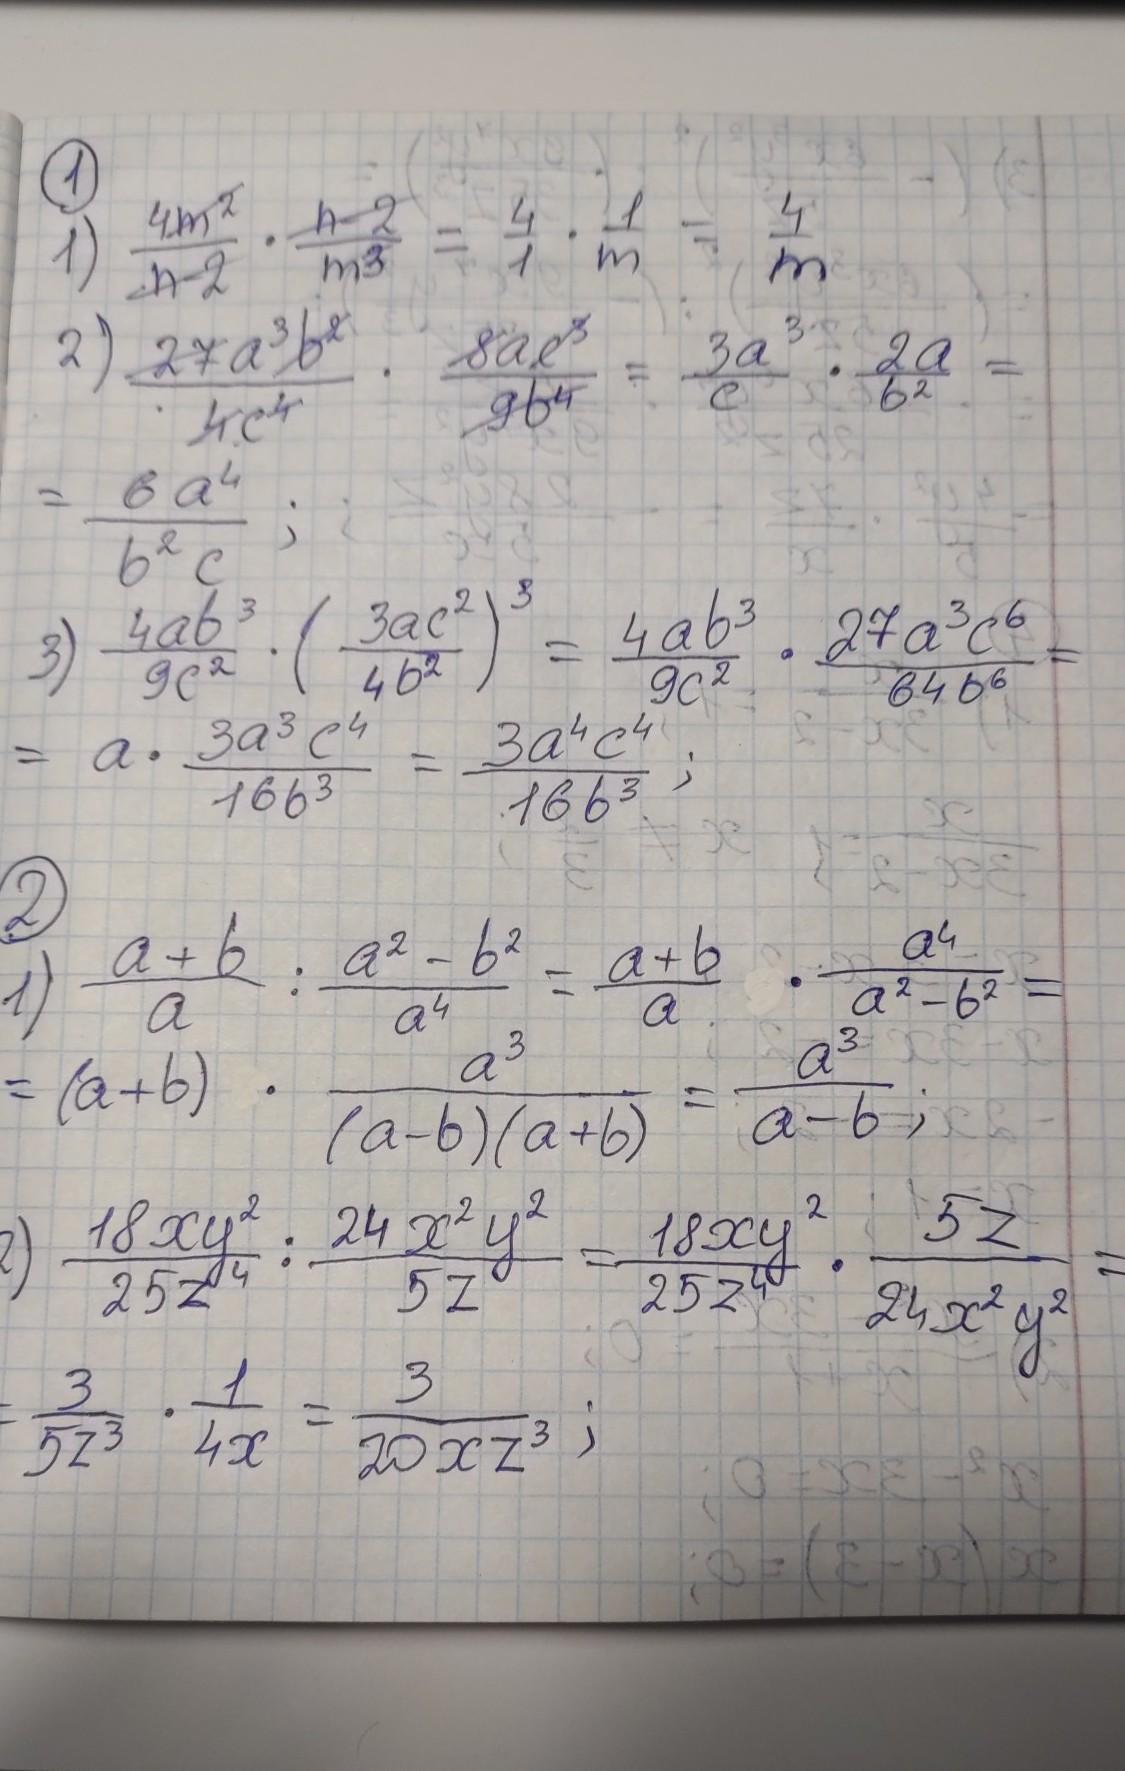 ①
1) \frac{4m^2}{n-2} \cdot \frac{n-2}{m^3} = \frac{4}{1} \cdot \frac{1}{m} = \frac{4}{m}
2) \frac{27a^3b^2}{4c^4} \cdot \frac{8ac^3}{9b^4} = \frac{3a^3}{c} \cdot \frac{2a}{b^2} =
= \frac{6a^4}{b^2c};
3) \frac{4ab^3}{9c^2} \cdot (\frac{3ac^2}{4b^2})^3 = \frac{4ab^3}{9c^2} \cdot \frac{27a^3c^6}{64b^6} =
= a \cdot \frac{3a^3c^4}{16b^3} = \frac{3a^4c^4}{16b^3};
②
1) \frac{a+b}{a} : \frac{a^2-b^2}{a^4} = \frac{a+b}{a} \cdot \frac{a^4}{a^2-b^2} =
= (a+b) \cdot \frac{a^3}{(a-b)(a+b)} = \frac{a^3}{a-b};
2) \frac{18xy^2}{25z^4} : \frac{24x^2y^2}{5z} = \frac{18xy^2}{25z^4} \cdot \frac{5z}{24x^2y^2} =
= \frac{3}{5z^3} \cdot \frac{1}{4x} = \frac{3}{20xz^3};